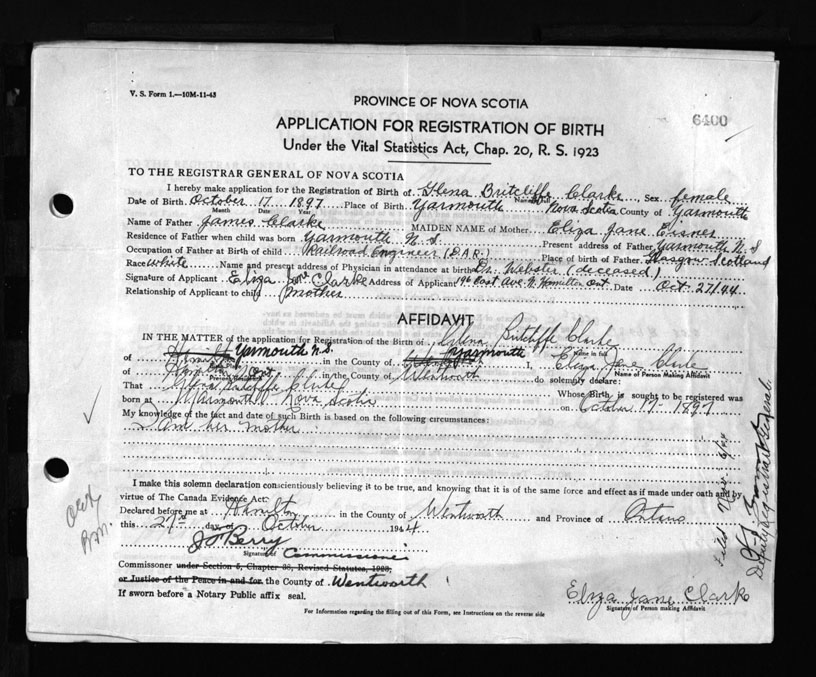 V. S. Form 1.—10M-11-43
PROVINCE OF NOVA SCOTIA
6400
APPLICATION FOR REGISTRATION OF BIRTH
Under the Vital Statistics Act, Chap. 20, R. S. 1923
TO THE REGISTRAR GENERAL OF NOVA SCOTIA
I hereby make application for the Registration of Birth of Clarke Sex female
Date of Birth October 17 1897 Place of Birth Yarmouth Nova Scotia County of Yarmouth
Month Date Year
Name of Father James Clarke MAIDEN NAME of Mother Eliza Jane
Residence of Father when child was born Yarmouth N S Present address of Father Yarmouth N. S
Occupation of Father at Birth of child Railroad Engineer (D.A.R.) Place of birth of Father Glasgow Scotland
Race white Name and present address of Physician in attendance at birth Dr. Webster (deceased)
Signature of Applicant Eliza Jane Clarke Address of Applicant 196 East Ave. N. Hamilton Ont Date Oct. 27/44
Relationship of Applicant to child mother
AFFIDAVIT
IN THE MATTER of the application for Registration of the Birth of Clarke
Name in full
of Hamilton Yarmouth N.S. in the County of Yarmouth I, Eliza Jane Clarke
Name of Person Making Affidavit
of Hamilton Ont. in the County of Wentworth do solemnly declare:
That Clarke Whose Birth is sought to be registered was
born at Yarmouth Nova Scotia on October 17 - 1897
My knowledge of the fact and date of such Birth is based on the following circumstances:
I am her mother
I make this solemn declaration conscientiously believing it to be true, and knowing that it is of the same force and effect as if made under oath and by
virtue of The Canada Evidence Act.
Declared before me at Hamilton in the County of Wentworth and Province of Ontario
this 27th day of October 1944
J Berry
Signature of Commissioner
Commissioner under Section 5, Chapter 36, Revised Statutes, 1923,
or Justice of the Peace in and for the County of Wentworth
If sworn before a Notary Public affix seal.
Eliza Jane Clarke
Signature of Person making Affidavit
For Information regarding the filling out of this Form, see Instructions on the reverse side
Filed Nov. 6/44
Deputy Registrar General.